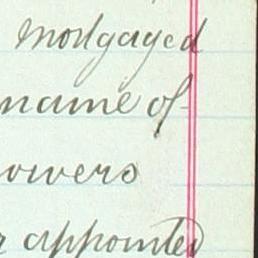 mortgaged
name of
owers
r appointed